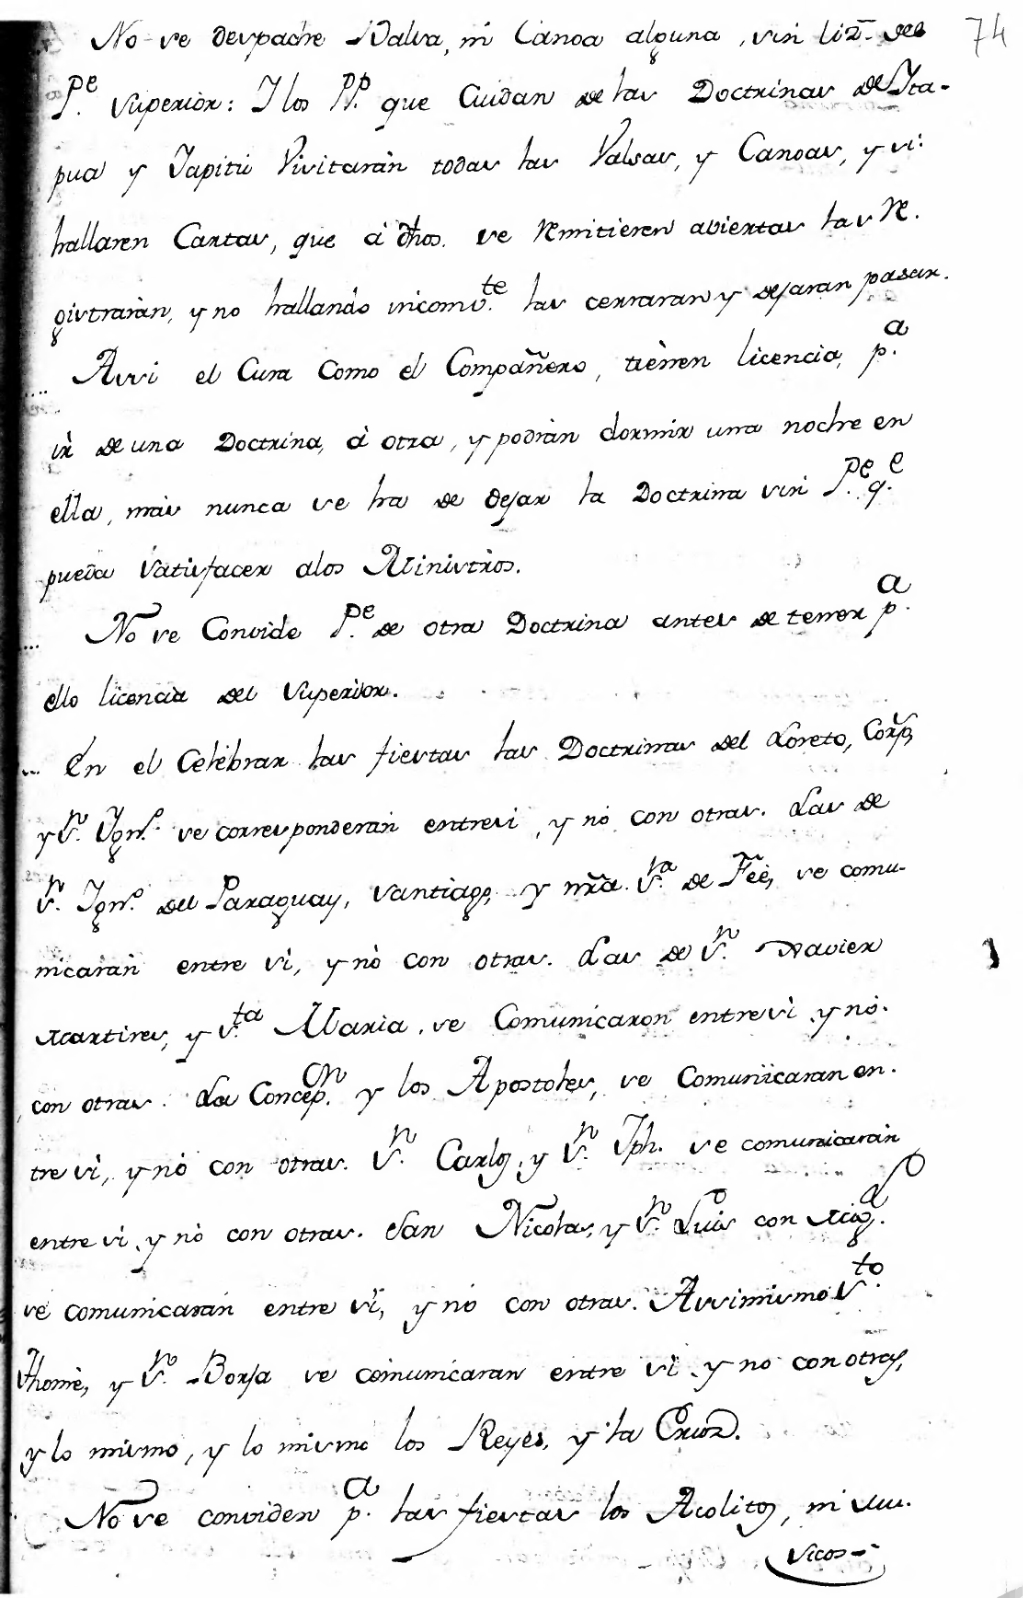 No se despache Balsa, ni Canoa alguna, sin liz.ª del 74
P.e Superior: I los PP. que Cuidan de las Doctrinas de Ita-
pua y Iapiùi Visitaràn todas las Valsas, y Canoas, y si:
hallaren Cartas, que à dhos. se remitieren abiertas las re.
gistraràn, y no hallando incomv.te las cerraran y dejaran pasar.
Assi el Cura como el Compañero, tienen licencia, p.a
ir de una Doctrina, à otra, y podràn dormir una noche en
ella, màs nunca se ha de dejar la Doctrina sin P.e q.e
pueda satisfacer alos Ministros.
No se Convide P.e de otra Doctrina antes de tener p.a
ello licencia del Superior.
En el Celebrar las fiestas las Doctrinas del Loreto, Corps,
y S.n Ign.o se corresponderàn entresi, y nò con otras. Las de
S.n Ign.o del Paraguay, Santiago, y nra. S.ra de Feè, se comu-
nicaràn entre sì, y nò con otras. Las de S.n Xavier
Martires, y S.ta Maria, se Comunicaron entre sì y nò.
con otras. La Concep.on y los Apostoles, se Comunicaran en.
tre sì, y nò con otras. S.n Carlos, y S.n Jph. se comunicaràn
entre sì, y nò con otras. San Nicolas, y S.n Luis con Mig.l so
se comunicaràn entre sì, y nò con otras. Assimismo S.to
Thomè, y S.n Borja se comunicaran entre sì y no con otras,
y lo mismo, y lo mismo los Reyes, y la Cruz.
No se conviden p.a las fiestas los Acolitos, ni Mu.
sicos-